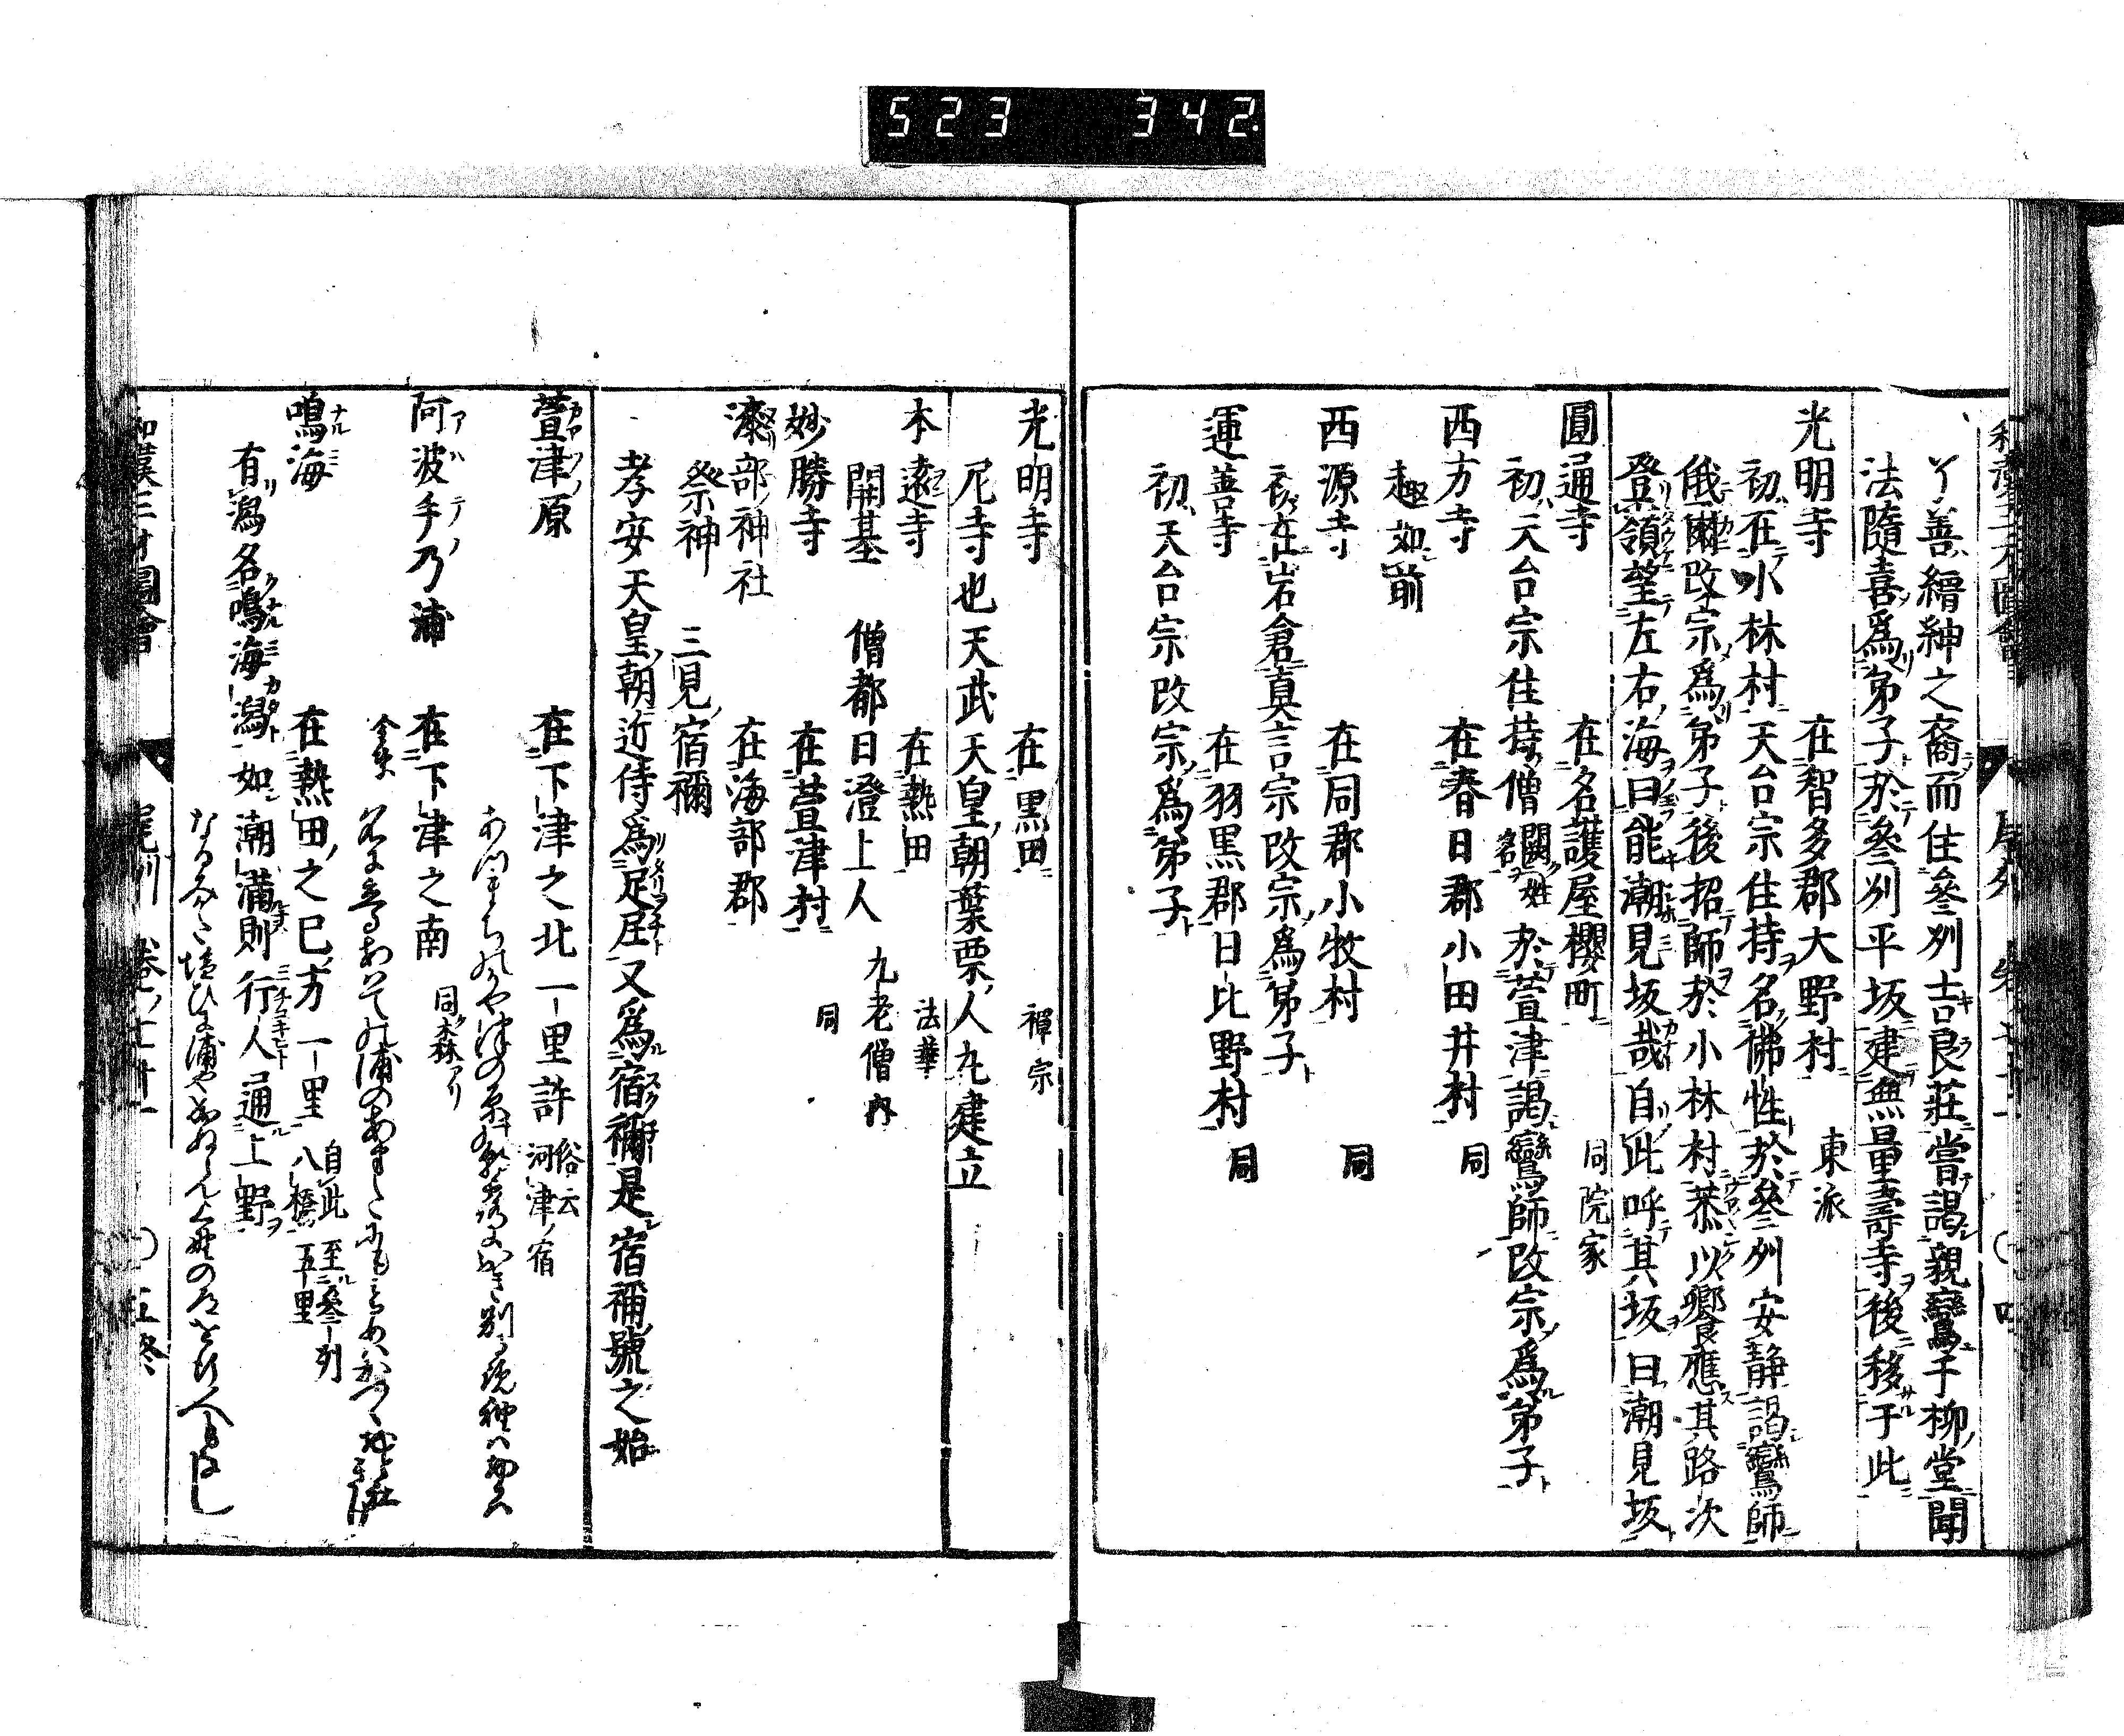 523 342.
丫善縉紳之裔而住參州吉良莊嘗謁親鸞于柳堂聞
法隨喜爲弟子於參州平坂建無量壽寺後移于此
光明寺 在智多郡大野村 東派
初在小林村天台宗住持名佛性於參州安靜謁鸞師
俄爾改宗爲弟子後招師於小林村恭以饗應其路次
登嶺望左右海曰能潮見坂哉自此呼其坂曰潮見坂
圓通寺 在名護屋櫻町 同院家
初天台宗住持僧闕姓名於萱津謁鸞師改宗爲弟子
西方寺 在春日郡小田井村 同
趣如前
西源寺 在同郡小牧村 同
初在岩倉真言宗改宗爲弟子
運善寺 在羽黒郡日比野村 同
初天台宗改宗爲弟子
光明寺 在黒田 禪宗
尼寺也天武天皇朝葉栗人丸建立
本遠寺 在熱田 法華
開基 僧都日澄上人 九老僧內
妙勝寺 在萱津村 同
漆部神社 在海部郡
祭神 三見宿禰
孝安天皇朝近侍爲足屋又爲宿禰是宿禰號之始
萱津原 在下津之北一里許 俗云河津宿
阿波手乃浦 在下津之南 同森アリ
鳴海 在熱田之巳方一里 自此至參州八橋五里
有潟名鳴海潟如潮滿則行人通上野
和漢三才圖會 尾州 卷七十一 〇五終